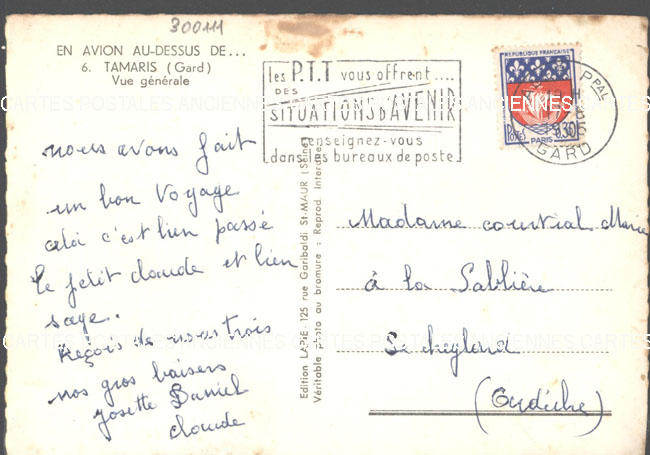 300111
EN AVION AU-DESSUS DE...
6. TAMARIS (Gard)
Vue générale
les P.T.T vous offrent....
DES
SITUATIONS D'AVENIR
renseignez-vous
dans les bureaux de poste
REPUBLIQUE FRANÇAISE
POSTES
PARIS
0,30
PPAL
GARD
CARTES POSTALES ANCIENNES
nous avons fait
un bon voyage
celoi c'est bien passé
le petit claude et bien
sage.
Reçois de nous trois
nos gros baisers
Josette Daniel
claude
Edition LAPIE - 125 rue Garibaldi St-MAUR (Seine)
Véritable photo au bromure : Reprod. Interdite
Madame courtial Marie
à la Sablière
(Ardèche)